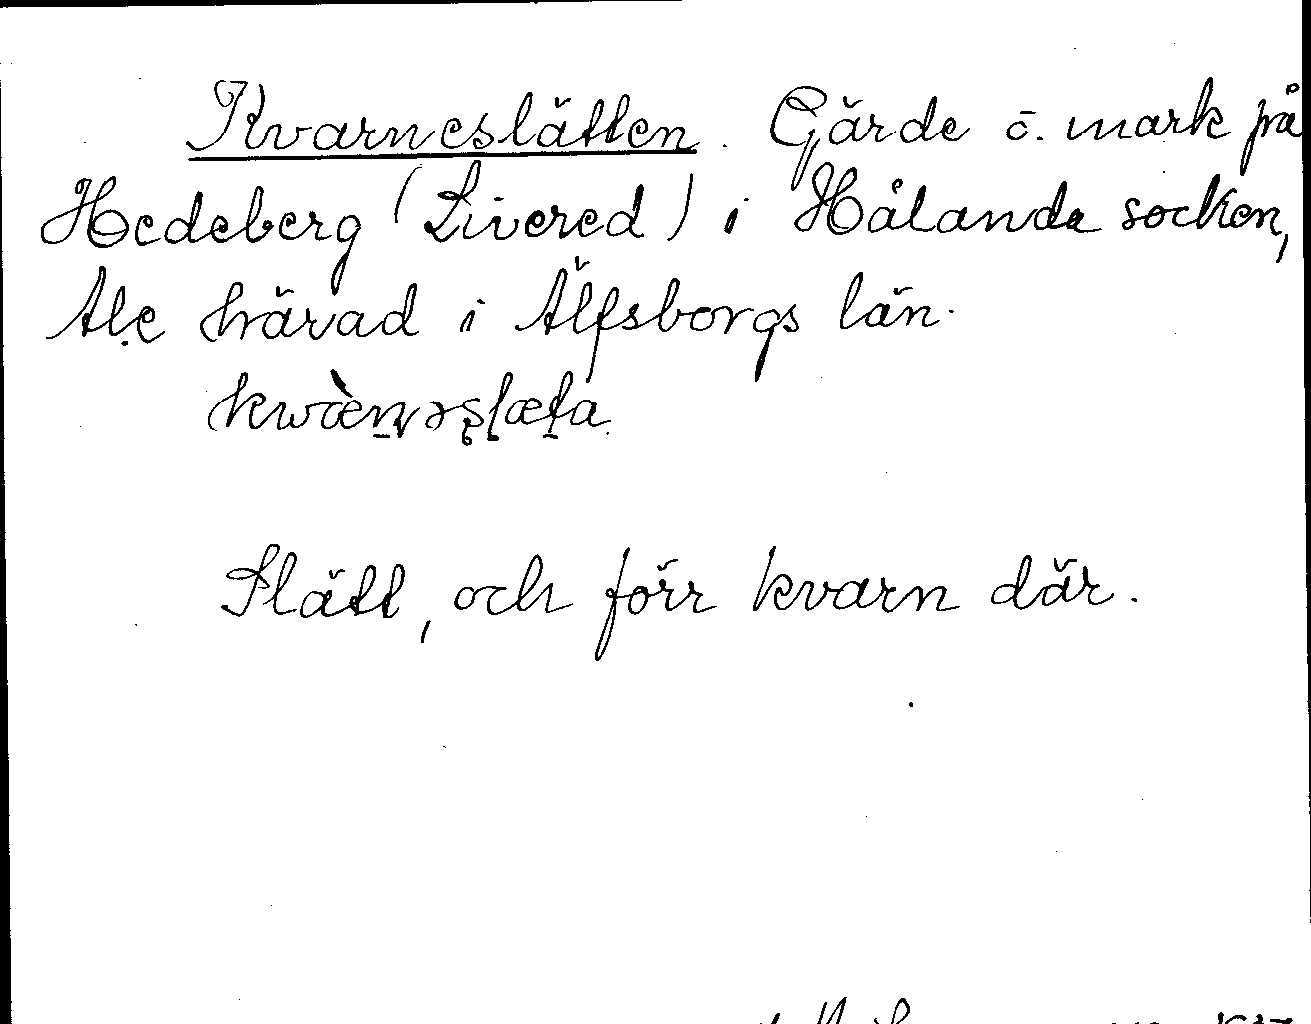 Kvarneslätten. Gärde o. mark på
Hedeberg (Livered) i Hålanda socken,
Ale härad i Älfsborgs län.
Slätt, och förr kvarn där.